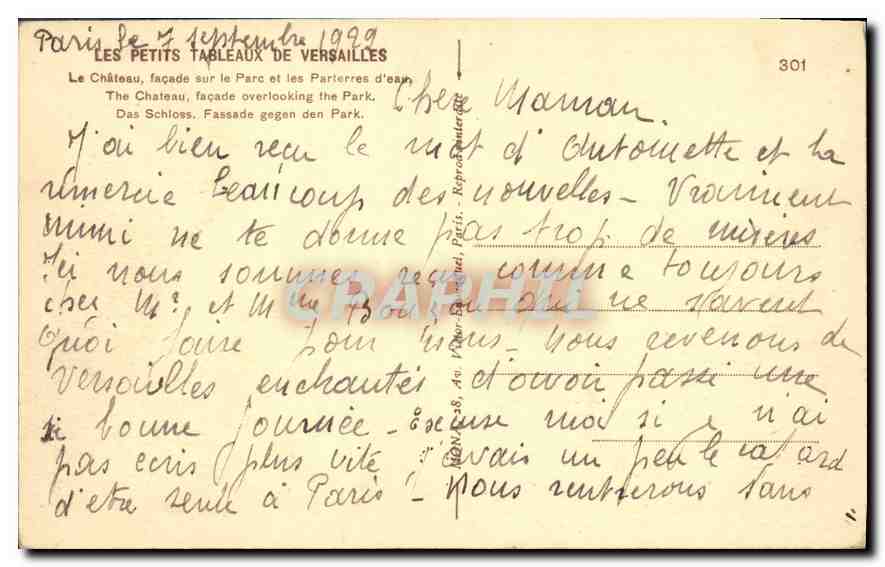 Paris le 7 septembre 1929
LES PETITS TABLEAUX DE VERSAILLES
Le Château, façade sur le Parc et les Parterres d'eau.
The Chateau, façade overlooking the Park.
Das Schloss. Fassade gegen den Park.
301
Chère Maman.
J'ai bien reçu le mot d'Antoinette et la
remercie beaucoup des nouvelles - Vraiment
mimi ne te donne pas trop de misères
Ici nous sommes reçu comme toujours
chez Mr et Mme qui ne savent
Quoi faire pour nous - Nous revenons de
Versailles enchantés d'avoir passé une
si bonne journée - Excuse moi si je n'ai
pas ecris plus vite j'avais un peu le cafard
d'etre seule à Paris ! - Nous rentrerons sans
Paris. - Reprod. interdite
CPAPHIL